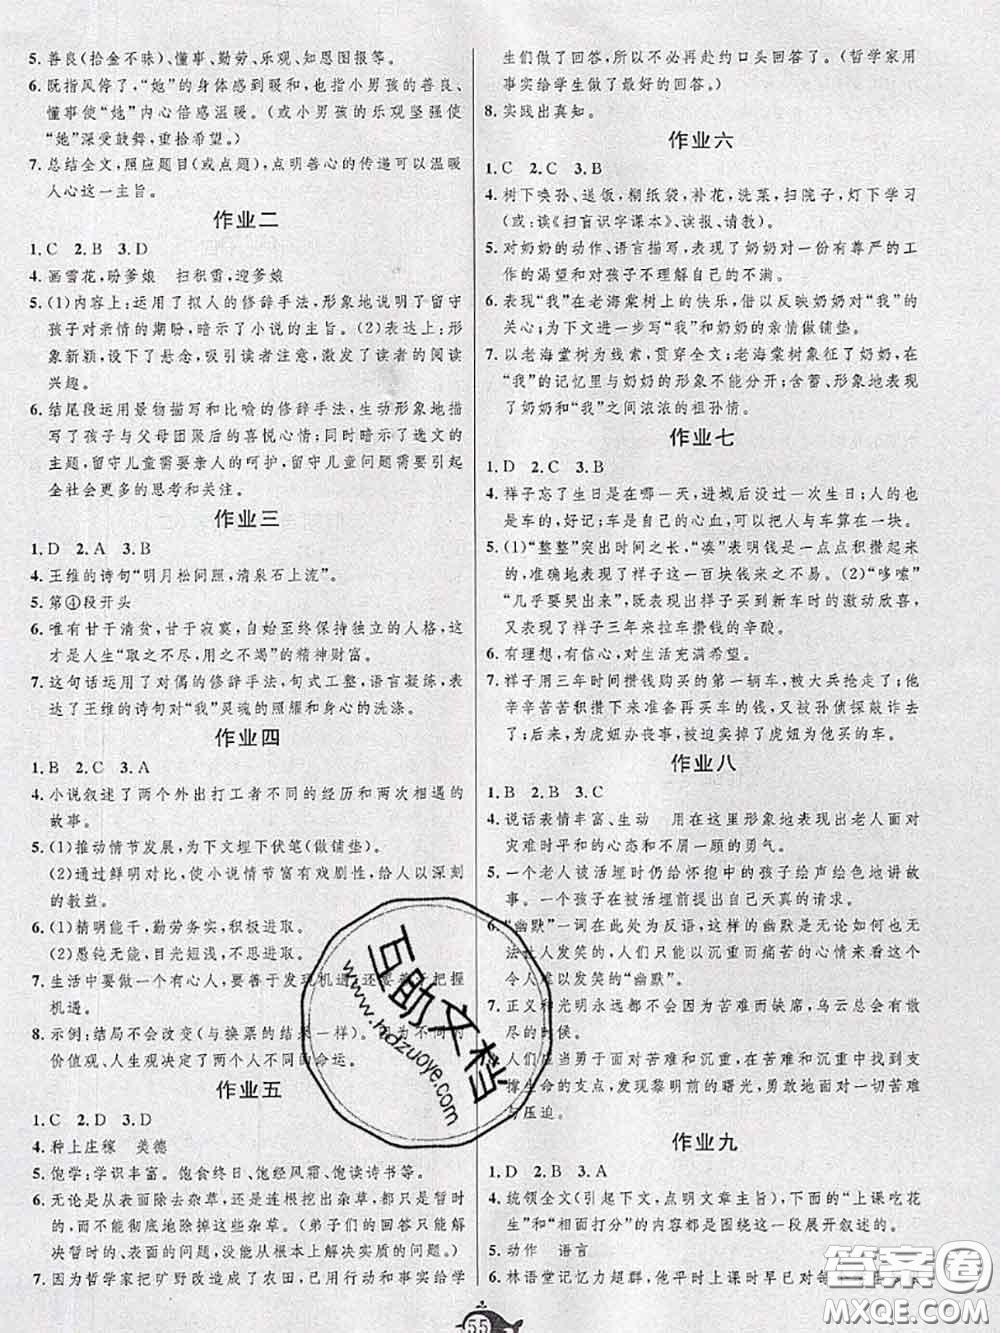 5. 善良(拾金不昧)、懂事、勤劳、乐观、知恩图报等。
6. 既指风停了,“她”的身体感到暖和,也指小男孩的善良、
懂事使“她”内心倍感温暖。(或小男孩的乐观坚强使
“她”深受鼓舞,重拾希望。)
7. 总结全文,照应题目(或点题),点明善心的传递可以温暖
人心这一主旨。
作业二
1.C 2.B 3.D
4. 画雪花,盼爹娘 扫积雪,迎爹娘
5. (1)内容上:运用了拟人的修辞手法,形象地说明了留守
孩子对亲情的期盼,暗示了小说的主旨。(2)表达上:形
象新颖,设下了悬念,吸引读者注意,激发了读者的阅读
兴趣。
6. 结尾段运用景物描写和比喻的修辞手法,生动形象地描
写了孩子与父母团聚后的喜悦心情;同时暗示了选文的
主题,留守儿童需要亲人的呵护,留守儿童问题需要引起
全社会更多的思考和关注。
作业三
1.D 2.A 3.B
4. 王维的诗句“明月松间照,清泉石上流”。
5. 第④段开头
6. 唯有甘于清贫,甘于寂寞,自始至终保持独立的人格,这
才是人生“取之不尽,用之不竭”的精神财富。
7. 这句话运用了对偶的修辞手法,句式工整,语言凝练,表
达了王维的诗句对“我”灵魂的照耀和身心的洗涤。
作业四
1.B 2.C 3.A
4. 小说叙述了两个外出打工者不同的经历和两次相遇的
故事。
5. (1)推动情节发展,为下文埋下伏笔(做铺垫)。
(2)通过鲜明对比,使小说情节富有戏剧性,给人以深刻
的教益。
6. (1)精明能干,勤劳务实,积极进取。
(2)愚钝无能,目光短浅,不思进取。
7. 生活中要做一个有心人,要善于发现机遇,还要善于把握
机遇。
8. 示例:结局不会改变(与换票的结果一样)。因为不同的
价值观、人生观决定了两个人不同的命运。
作业五
1.C 2.D 3.D
4. 种上庄稼 美德
5. 饱学:学识丰富。饱食终日、饱经风霜、饱读诗书等。
6. 无论是从表面除去杂草,还是连根挖出杂草,都只是暂时
的,不能彻底地除掉这些杂草。(弟子们的回答只能够
解决暂时的、表面的问题,没能从根本上解决实质的问题。)
7. 因为哲学家把旷野改造成了农田,以行动和事实给学
生们做了回答,所以不必再赴约口头回答了。(哲学家用
事实给学生做了最好的回答。)
8. 实践出真知。
作业六
1.C 2.C 3.B
4. 树下唤孙、送饭,糊纸袋,补花,洗菜,扫院子,灯下学习
(或:读《扫盲识字课本》、读报、请教)。
5. 对奶奶的动作、语言描写,表现了奶奶对一份有尊严的工
作的渴望和对孩子不理解自己的不满。
6. 表现“我”在老海棠树上的快乐,借以反映奶奶对“我”的
关心;为下文进一步写“我”和奶奶的亲情做铺垫。
7. 以老海堂树为线索,贯穿全文;老海堂树象征了奶奶,在
“我”的记忆里与奶奶的形象不能分开;含蓄、形象地表现
了奶奶和“我”之间浓浓的祖孙情。
作业七
1.D 2.C 3.B
4. 祥子忘了生日是在哪一天,进城买过一次生日;人的也
是车的,好记;车是自己的心血,可以把人与车算在一块。
5. (1)“整整”突出时间之长,“凑”表明钱是一点点积攒起来
的,准确地表现了祥子这一百块钱来之不易。(2)“哆嗦”
“几乎要哭出来”,既表现出祥子买到新车时的激动欣喜,
又表现了祥子三年来拉车攒钱的辛酸。
6. 有理想,有信心,对生活充满希望。
7. 祥子用三年时间攒钱购买的第一辆车,被大兵抢走了;他
辛辛苦苦积攒下来再买车的钱,又被孙侦探敲诈去
了;后来,为虎妞办丧事,被迫卖掉了虎妞为他买的车。
作业八
1.B 2.B 3.C
4. 说话表情丰富、生动 用在这里形象地表现出老人面对
灾难时平和的心态和不屑一顾的勇气。
5. 一个老人被活埋时仍给怀抱中的孩子绘声绘色地讲故
事;孩子在被活埋前提出自己天真的请求。
6. “幽默”一词在此处为反语,这样的幽默是无论如何也无
法让人发笑的,人们只能以沉重而痛苦的心情来看这个
令人难以发笑的“幽默”。
7. 正义和光明永远都不会因为苦难而缺席,乌云总会有散
尽的时候。
人们应当勇于面对苦难和沉重,在苦难和沉重中找到支
撑生命的支点,发现黎明前的曙光,勇敢地面对一切苦难
与压迫。
作业九
1.D 2.B 3.A
4. 统领全文(引起下文,点明文章主旨),下面的“上课吃花
生”和“相面打分”的故事都是围绕这一段展开叙述的。
5. 动作 语言
6. 林语堂记忆力超群,他平时上课时早已对每
55
互助文档
www.hdzuoye.com
答案圈
MXQE.COM